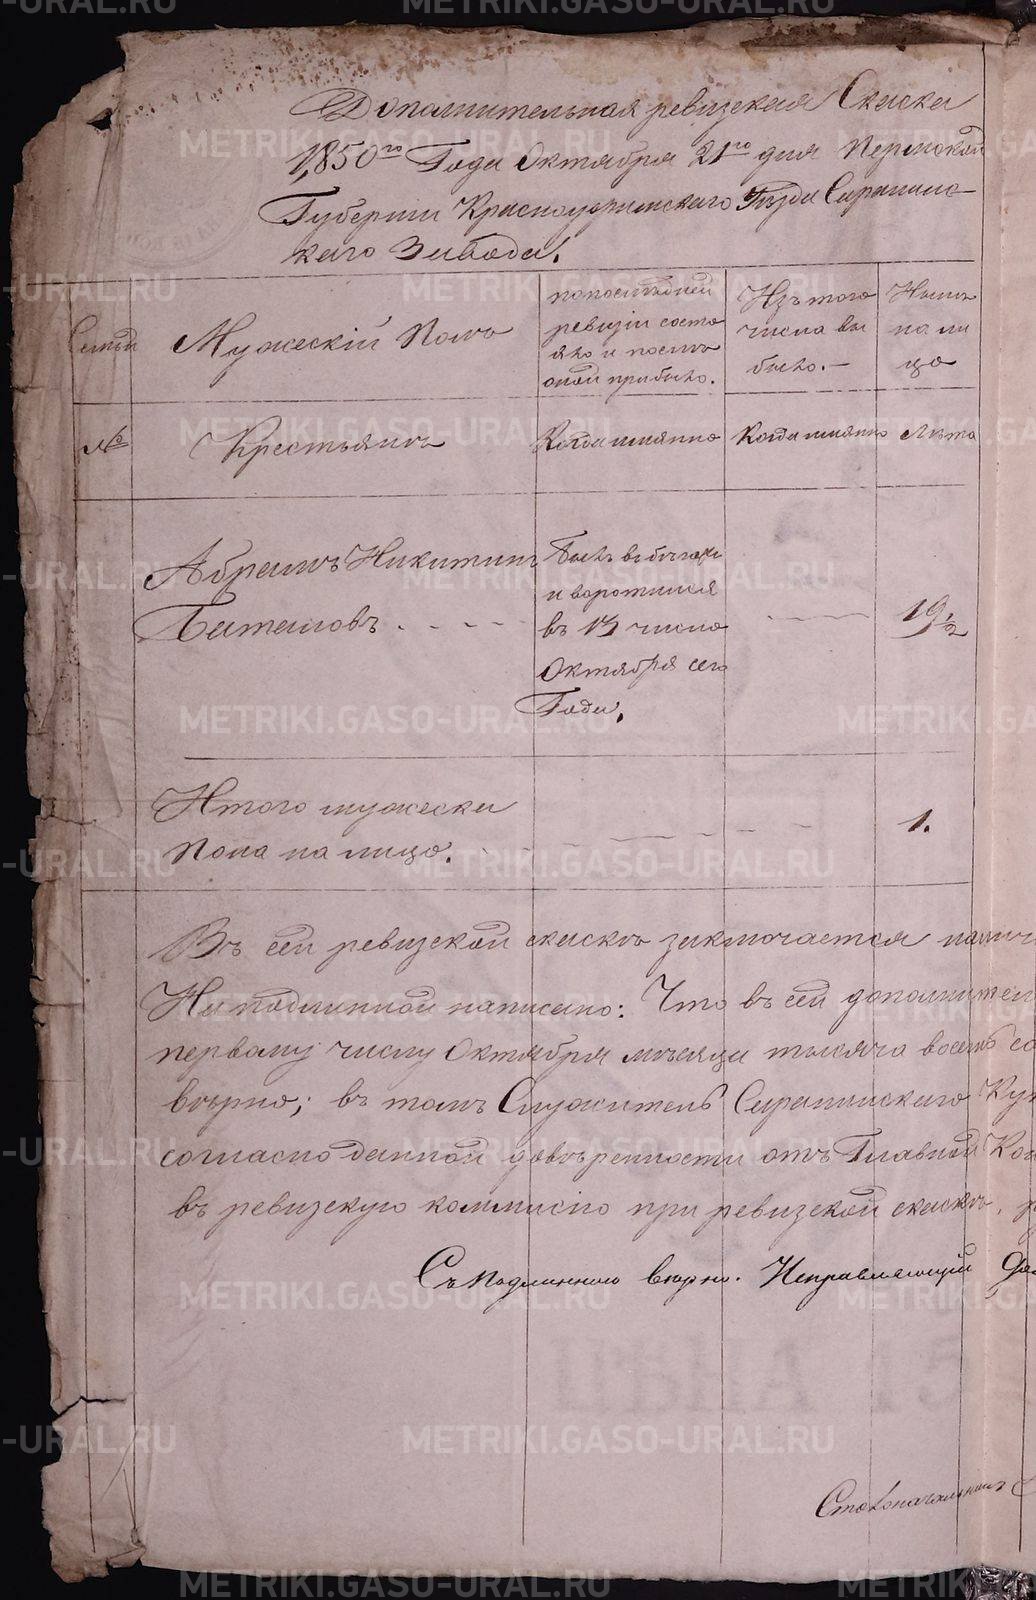 Дополнительная ревизская Сказка
1850го Года Октября 21го дня Пермской
Губернии Красноуфимскаго Уѣзда Саранинс-
каго Завода.
Семьи
Мужескій Полъ
попослѣдней
ревизіи состо
яло и послѣ
оной прибыло.
Изътого
числа вы
было. —
Нынѣ
на ли
цо
№
Крестьянъ
Когда имянно
Когда имянно
Лѣта
Абрамъ Никитинъ
Баташовъ
Былъ въ бѣгахъ
и воротился
въ 13 число
Октября сего
Года.
19 1/2
Итого мужеска
Пола на лицо.
1.
Въ сей ревизской сказкѣ заключается налич
На подлинной написано: Что въ сей дополнител
первому числу Октября мѣсяца тысяча восемь со
вѣрно; въ томъ Служитель Саранинскаго
согласно данной довѣренности отъ Главной Кон
въ ревизскую коммисію при ревизской сказкѣ,
Съ подлиннымъ вѣрно. Исправляющій
Столоначальникъ
METRIKI.GASO-URAL.RU